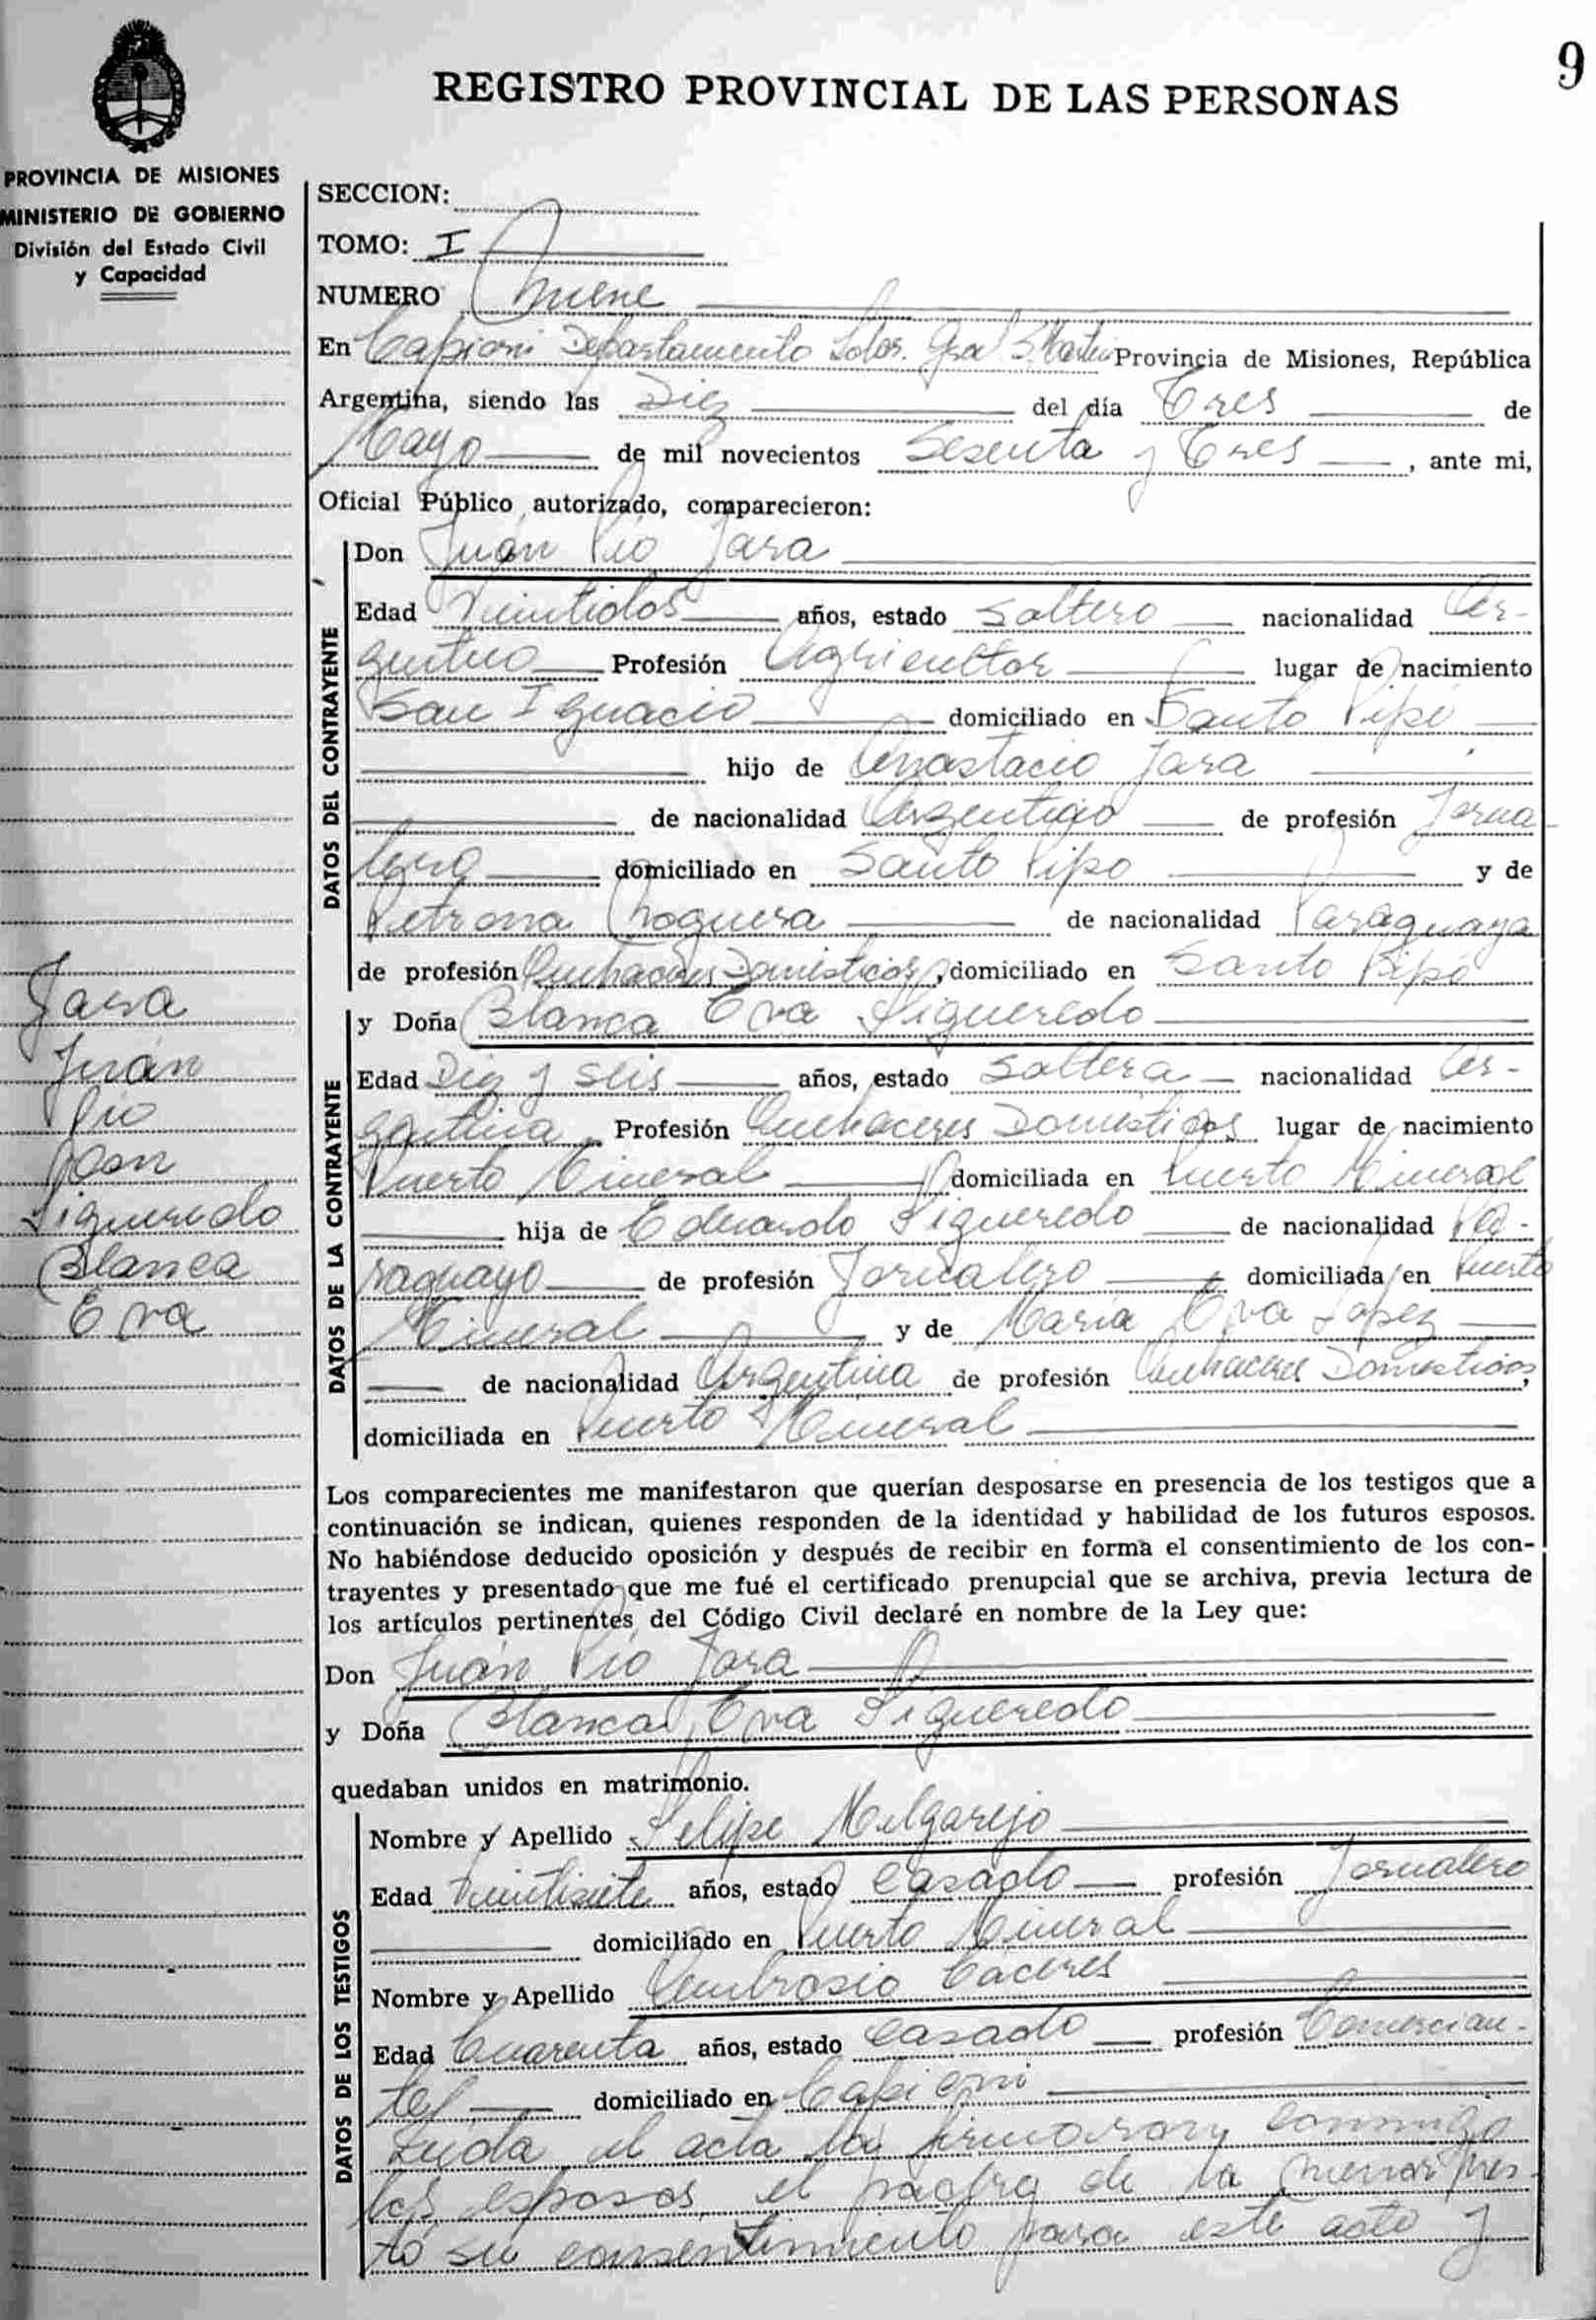 9
REGISTRO PROVINCIAL DE LAS PERSONAS
PROVINCIA DE MISIONES
MINISTERIO DE GOBIERNO
División del Estado Civil
y Capacidad
SECCION:
TOMO: I
NUMERO Nueve
En Capiovi Departamento Ldor. Gral S. Martin Provincia de Misiones, República
Argentina, siendo las Diez del día Tres de
Mayo de mil novecientos Sesenta y Tres, ante mi,
Oficial Público autorizado, comparecieron:
DATOS DEL CONTRAYENTE
Don Juan Pío Jara
Edad Veintidos años, estado Soltero nacionalidad Ar-
gentino Profesión Agricultor lugar de nacimiento
San Ignacio domiciliado en Santo Pipó
hijo de Anastacio Jara
de nacionalidad Argentino de profesión Jorna
lero domiciliado en Santo Pipo y de
Petrona Noguera de nacionalidad Paraguaya
de profesión Quehaceres Domésticos, domiciliado en Santo Pipó
DATOS DE LA CONTRAYENTE
y Doña Blanca Eva Figueredo
Edad Diez y seis años, estado Soltera nacionalidad Ar-
gentina Profesión Quehaceres Domésticos lugar de nacimiento
Puerto Mineral domiciliada en Puerto Mineral
hija de Eduardo Figueredo de nacionalidad Pa-
raguayo de profesión Jornalero domiciliada en Puerto
Mineral y de María Eva Lopez
de nacionalidad Argentina de profesión Quehaceres Domesticos,
domiciliada en Puerto Mineral
Jara
Juán
Pío
con
Figueredo
Blanca
Eva
Los comparecientes me manifestaron que querían desposarse en presencia de los testigos que a
continuación se indican, quienes responden de la identidad y habilidad de los futuros esposos.
No habiéndose deducido oposición y después de recibir en forma el consentimiento de los con-
trayentes y presentado que me fué el certificado prenupcial que se archiva, previa lectura de
los artículos pertinentes del Código Civil declaré en nombre de la Ley que:
Don Juán Pío Jara
y Doña Blanca Eva Figueredo
quedaban unidos en matrimonio.
DATOS DE LOS TESTIGOS
Nombre y Apellido Felipe Melgarejo
Edad Veintisiete años, estado Casado profesión Jornalero
domiciliado en Puerto Mineral
Nombre y Apellido Ambrosio Caceres
Edad Cuarenta años, estado Casado profesión Comercian-
te domiciliado en Capiovi
Leida el acta la firmaron conmigo
los esposos, el padre de la menor pres-
tó su consentimiento para este acto y